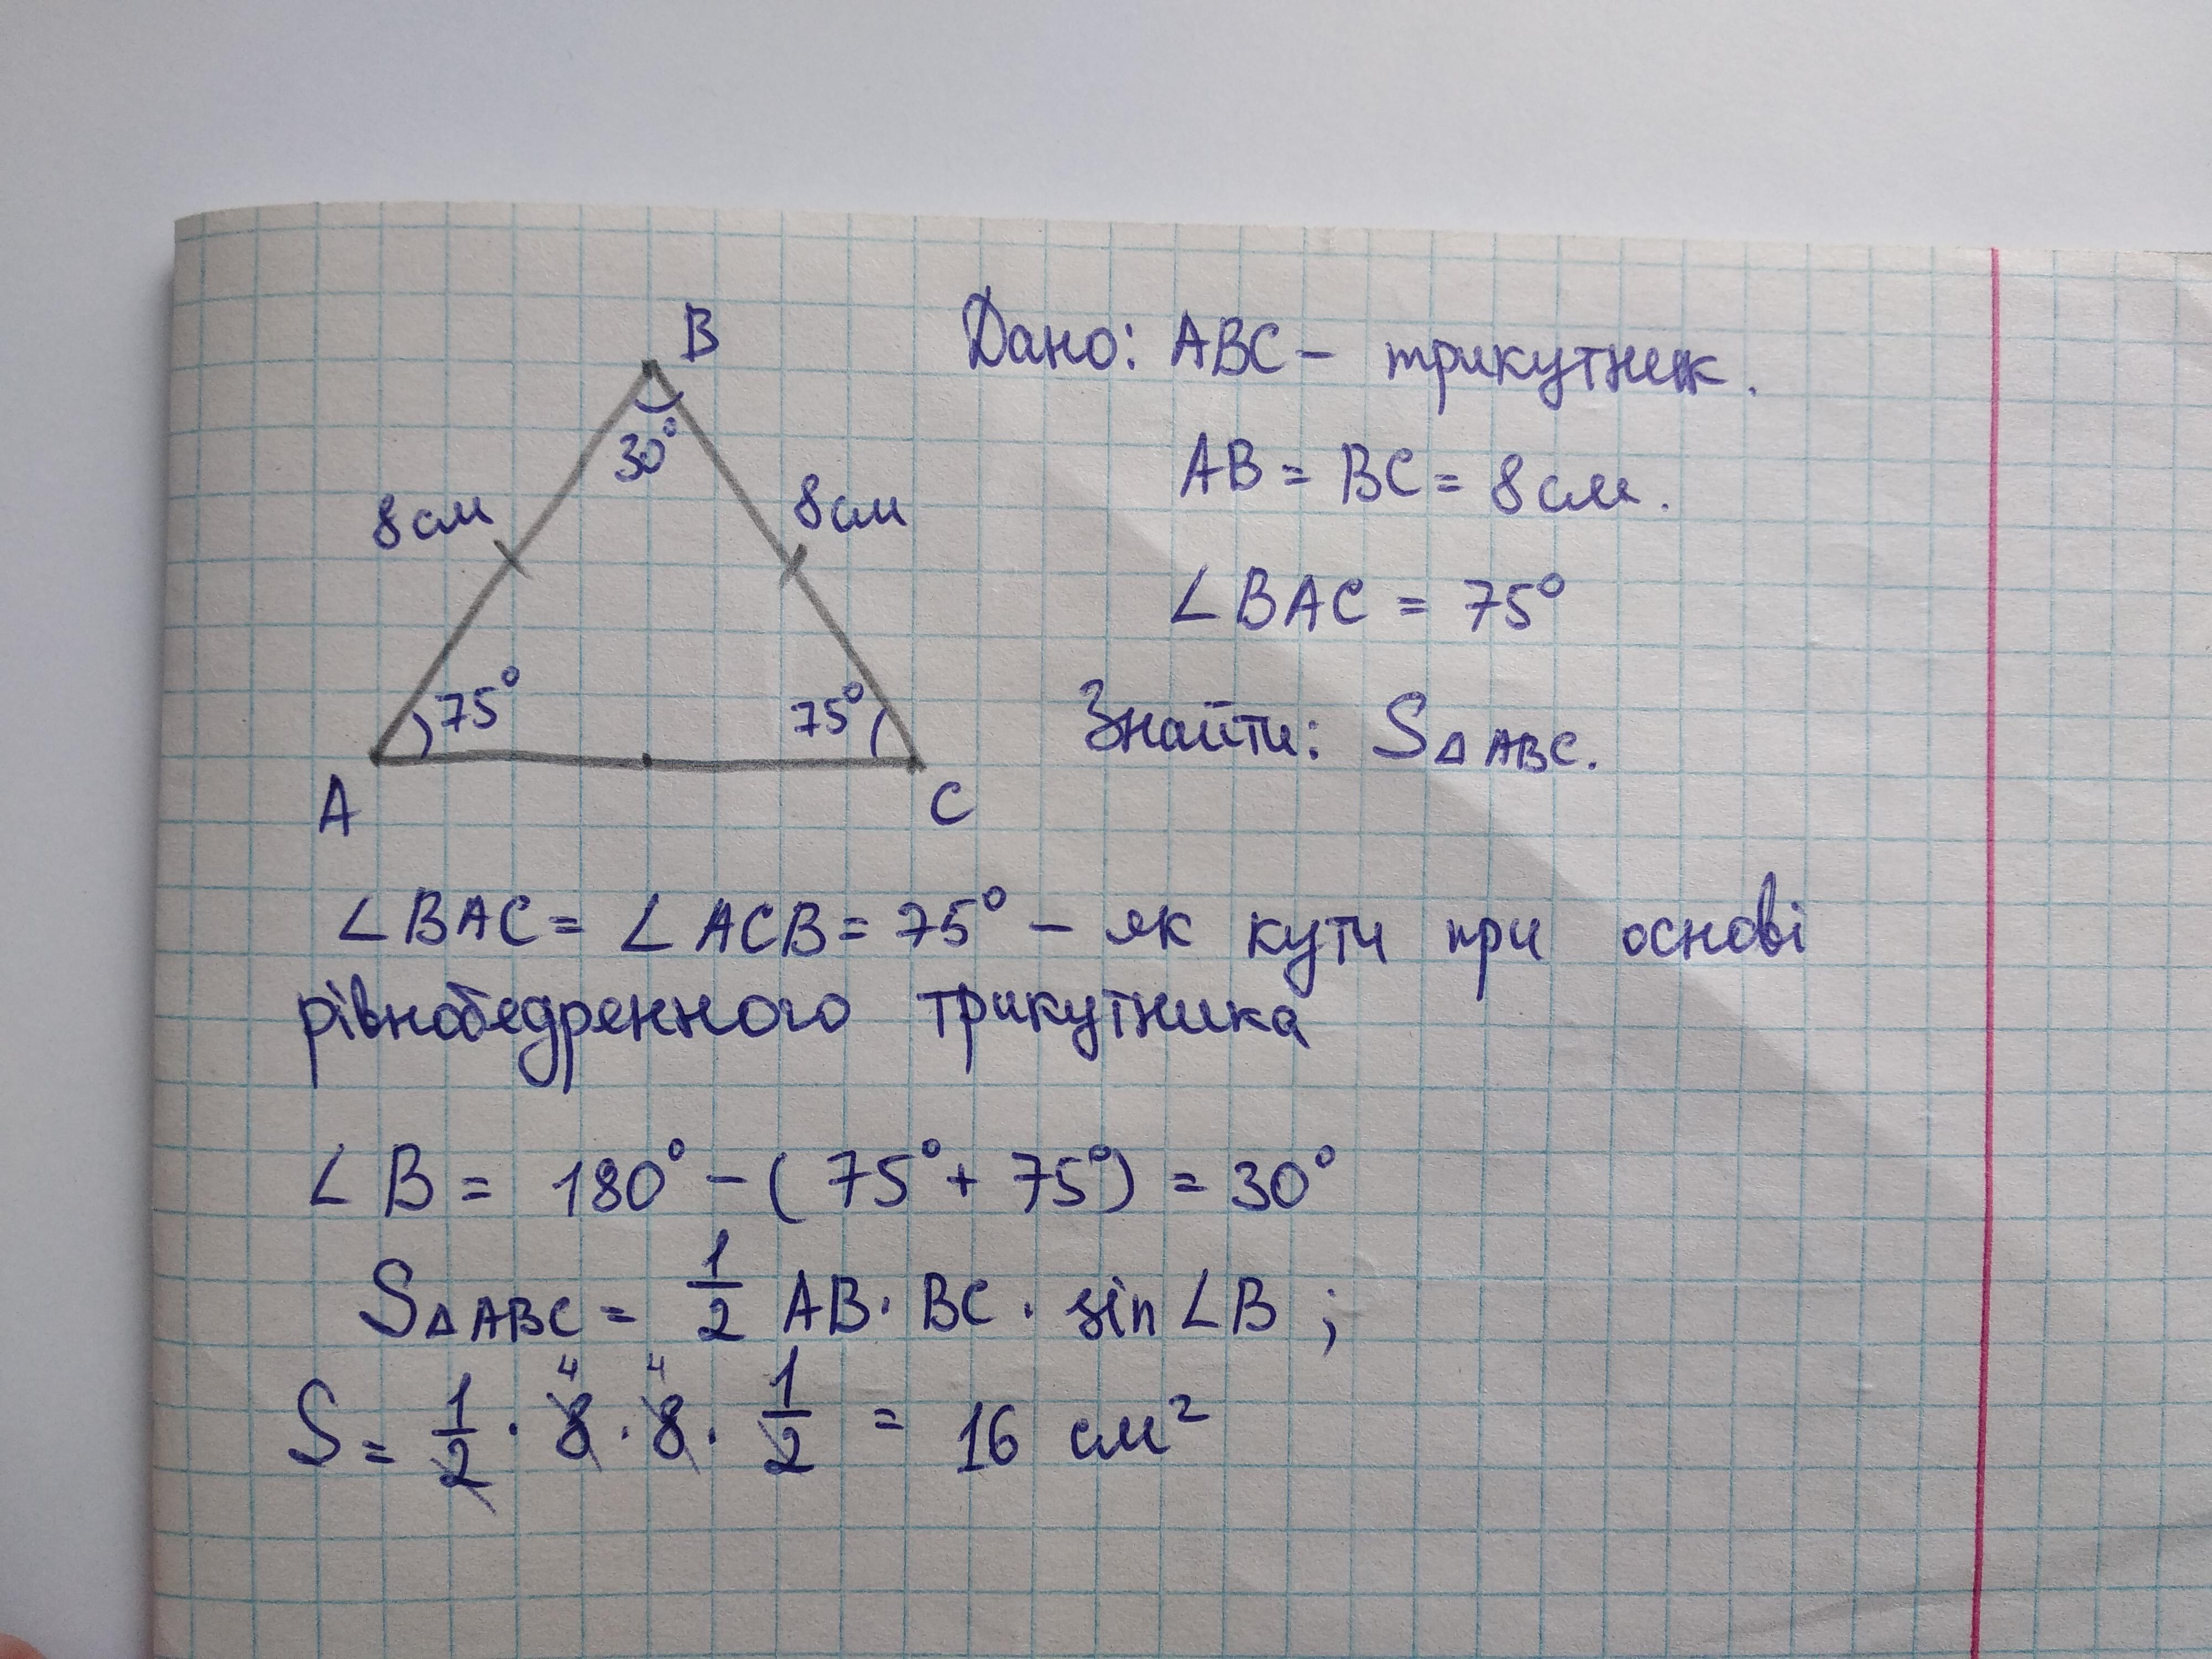 B
30°
8 см
8 см
75°
75°
A
C
Дано: ABC – трикутник.
AB = BC = 8 см.
∠BAC = 75°
Знайти: S△ABC.
∠BAC = ∠ACB = 75° – як кути при основі
рівнобедренного трикутника
∠B = 180° – (75° + 75°) = 30°
S△ABC = 1/2 AB · BC · sin∠B ;
4 4
S = 1/2 · 8 · 8 · 1/2 = 16 см²